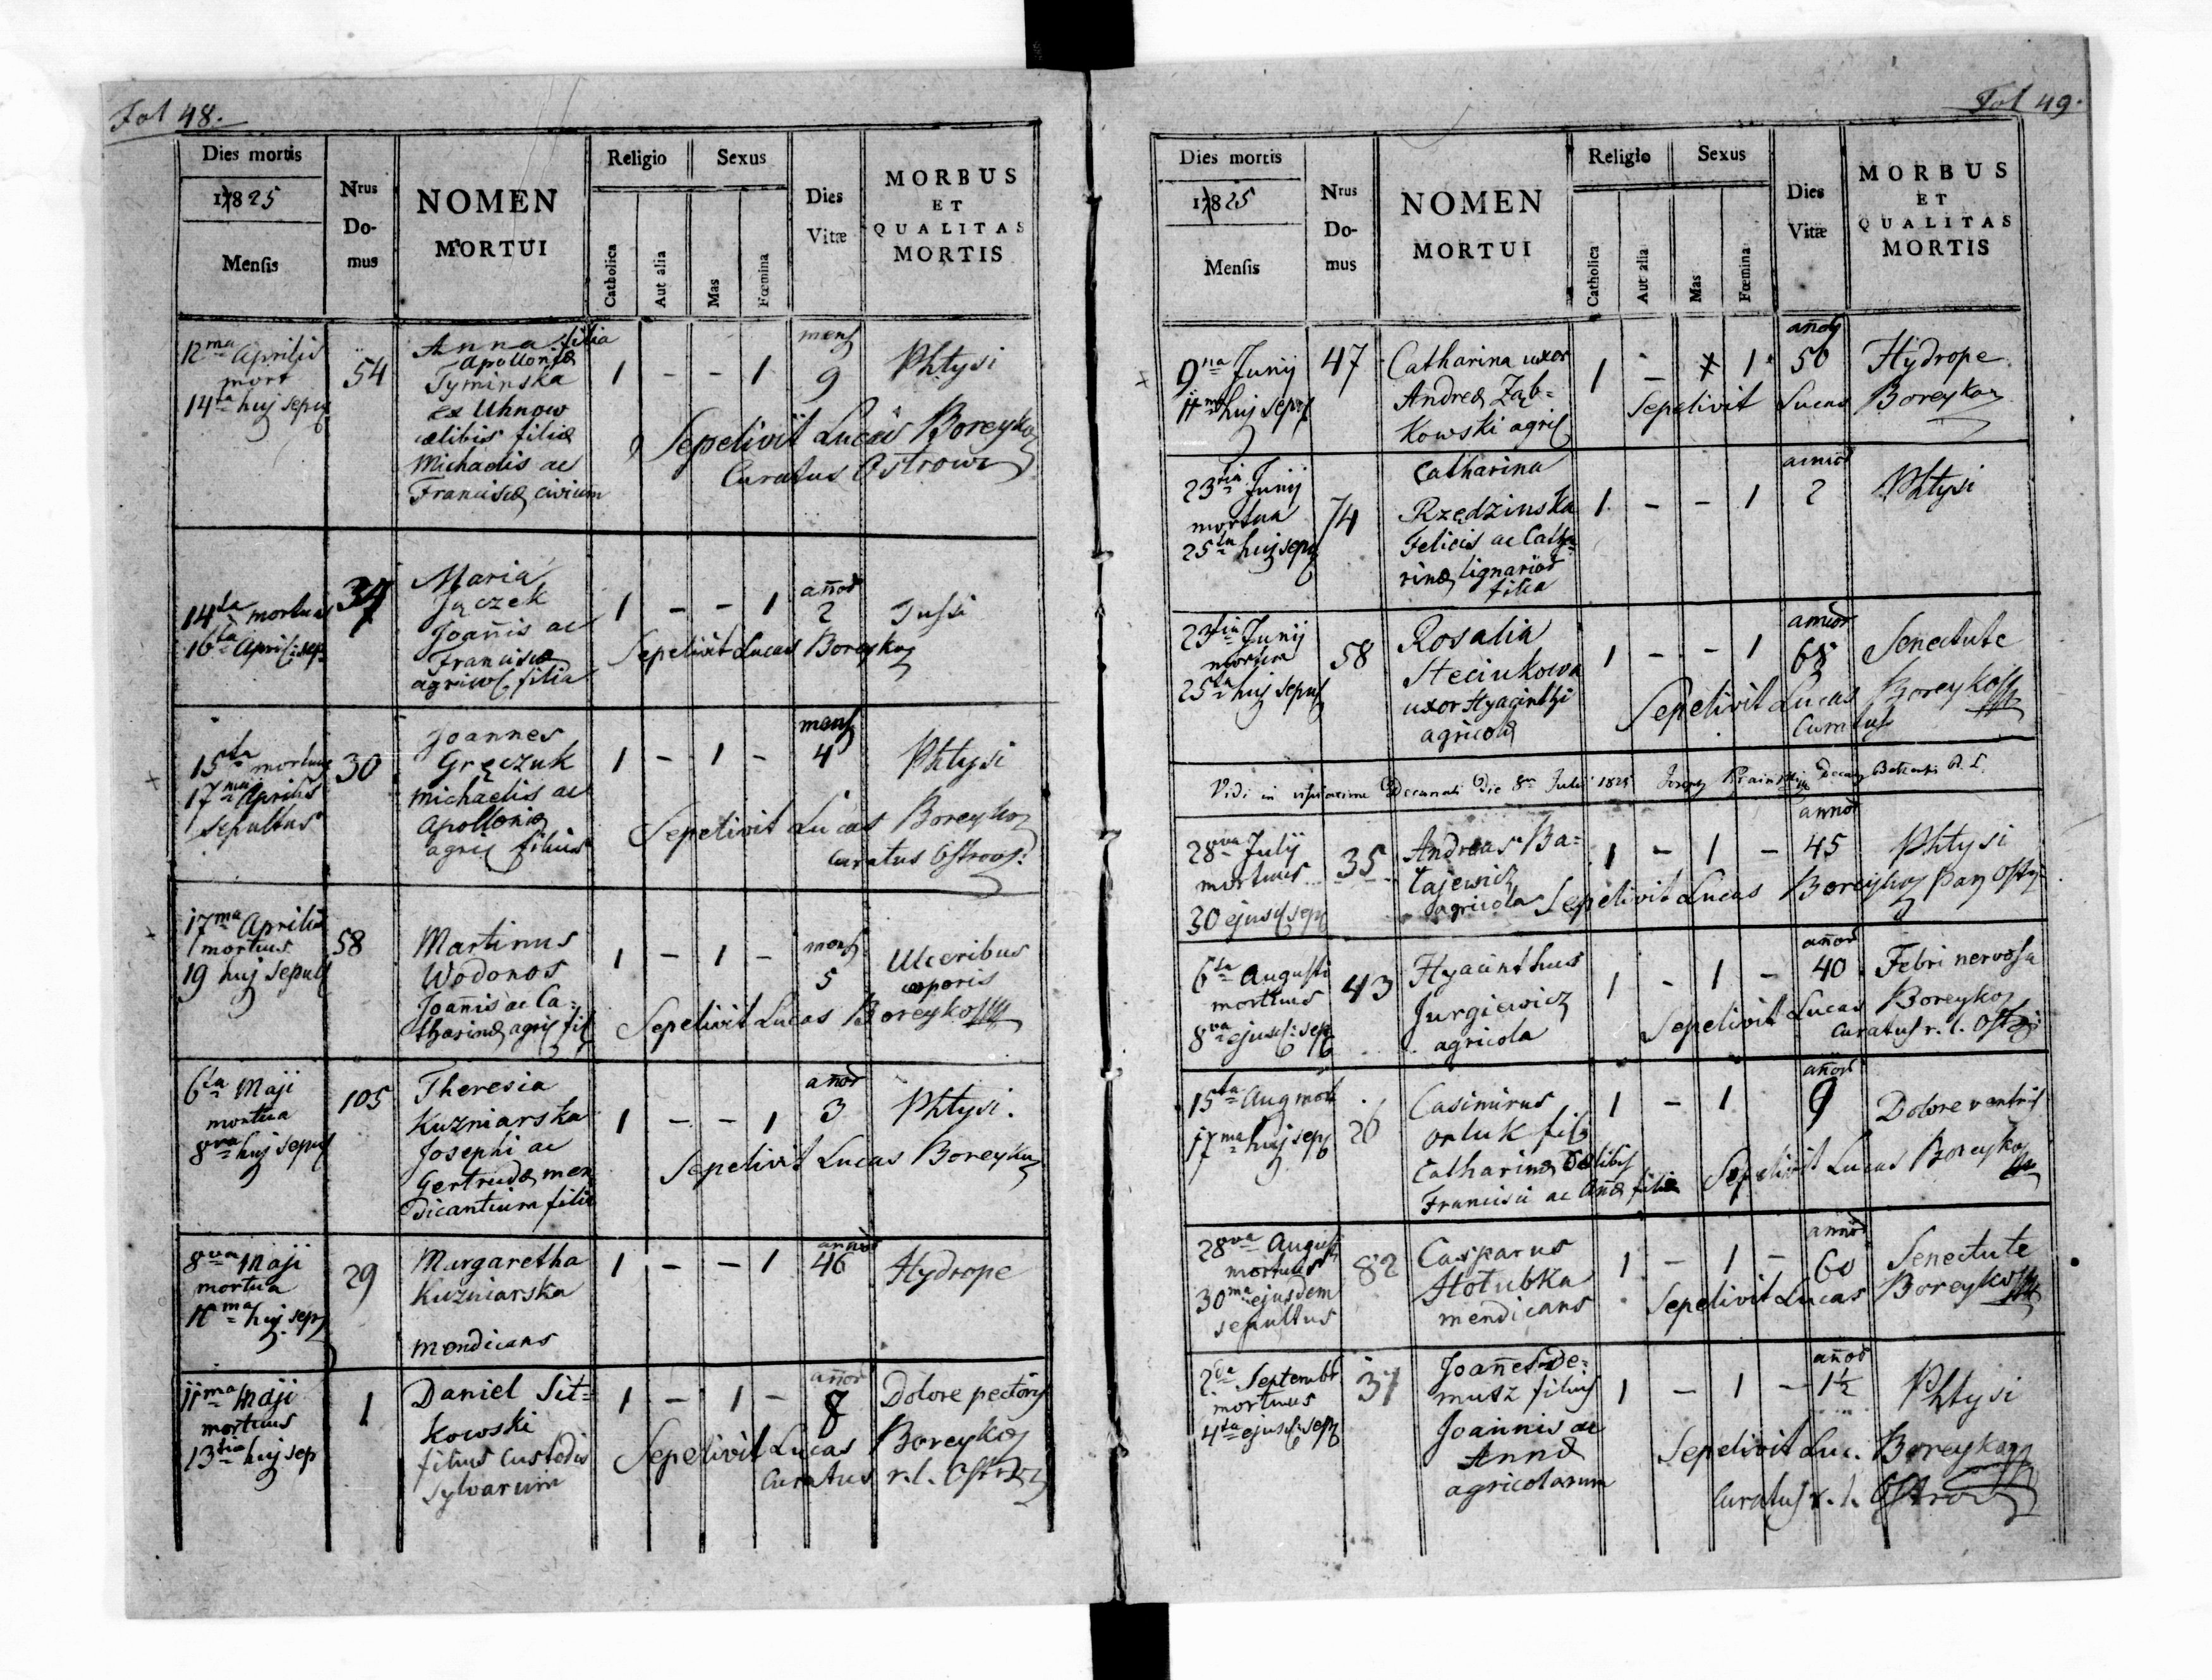 Fol 48.
Dies mortis
1825
Mensis
Nrus
Do-
mus
NOMEN
MORTUI
Religio
Sexus
Catholica
Aut alia
Mas
Fœmina
Dies
Vitæ
MORBUS
ET
QUALITAS
MORTIS
12ma Aprilis
mort
14ta huj sepul
54
Anna filia
Apolloniæ
Tyminska
ex Uhnow
cælibis filiæ
Michaelis ac
Franciscæ civium
1 - - 1
mens
9
Phtysi
Sepelivit Lucas Boreyko
Curatus Ostrow
14ta mortua
16ta April: sep
37
Maria
Jączek
Joañis ac
Franciscæ
agricol filia
1 - - 1
añor
2
Tussi
Sepelivit Lucas Boreyko
15ta mortuus
17ma Aprilis
sepultus
30
Joannes
Gręczuk
Michaelis ac
Apolloniæ
agric filius
1 - 1 -
mens
4
Phtysi
Sepelivit Lucas Boreyko
Curatus Ostrow:
17ma Aprilis
mortuus
19 huj sepult
58
Martinus
Wodonos
Joañis ac Ca-
tharinæ agric fil
1 - 1 -
mens
5
Ulceribus
corporis
Sepelivit Lucas Boreyko
6ta Maji
mortua
8va huj sepul
105
Theresia
Kuzniarska
Josephi ac
Gertrudæ men
dicantium filia
1 - - 1
añor
3
Phtysi.
Sepelivit Lucas Boreyko
8va Maji
mortua
10ma huj sep
29
Margaretha
Kuzniarska
mendicans
1 - - 1
annor
46
Hydrope
11ma Maji
mortuus
13tia huj sep
1
Daniel Sit=
kowski
filius Custodis
Sylvarum
1 - 1 -
añor
8
Dolore pectoris
Sepelivit Lucas Boreyko
Curatus r.l. Ostrow
Fol 49.
Dies mortis
1825
Mensis
Nrus
Do-
mus
NOMEN
MORTUI
Religio
Sexus
Catholica
Aut alia
Mas
Fœmina
Dies
Vitæ
MORBUS
ET
QUALITAS
MORTIS
9na Junij
11ma huj sepul
47
Catharina uxor
Andreæ Ząb=
kowski agric
1 - 1
añor
50
Hydrope
Sepelivit Lucas Boreyko
23tia Junij
mortua
25ta huj sepul
74
Catharina
Rzędzinska
Felicis ac Catha
rinæ lignarior
filia
1 - - 1
annor
2
Phtysi
23tia Junij
mortua
25ta huj sepul
58
Rosalia
Steciukowa
uxor Hyacinthi
agricolæ
1 - - 1
annor
68
Senectute
Sepelivit Lucas Boreyko
Curatus
Vidi in visitatione Decanali Die 8va Julii 1825
28va July
mortuus
30 ejusd sep
35
Andreas Ba=
łajewicz
agricola
1 - 1 -
annor
45
Phtysi
Sepelivit Lucas Boreyko
6ta Augusti
mortuus
8va ejusd: sep
43
Hyacinthus
Jurgiewicz
agricola
1 - 1 -
añor
40
Febri nervosa
Sepelivit Lucas Boreyko
Curatus r. l. Ostro
15ta Aug mort
17ma huj sep
26
Casimirus
Orluk fils
Catharinæ Cælibis
Francisci ac Añæ filiæ
1 - 1
añor
9
Dolore ventris
Sepelivit Lucas Boreyko
28va Augusti
mortuus
30ma ejusdem
sepultus
82
Casparus
Hołubka
mendicans
1 - 1 -
annor
60
Senectute
Sepelivit Lucas Boreyko
2da Septembr
mortuus
4ta ejusd: sep
37
Joañes De=
musz filius
Joannis ac
Annæ
agricolarum
1 - 1 -
añor
1½
Phtysi
Sepelivit Luc. Boreyko
Curatus r. l. Ostrow